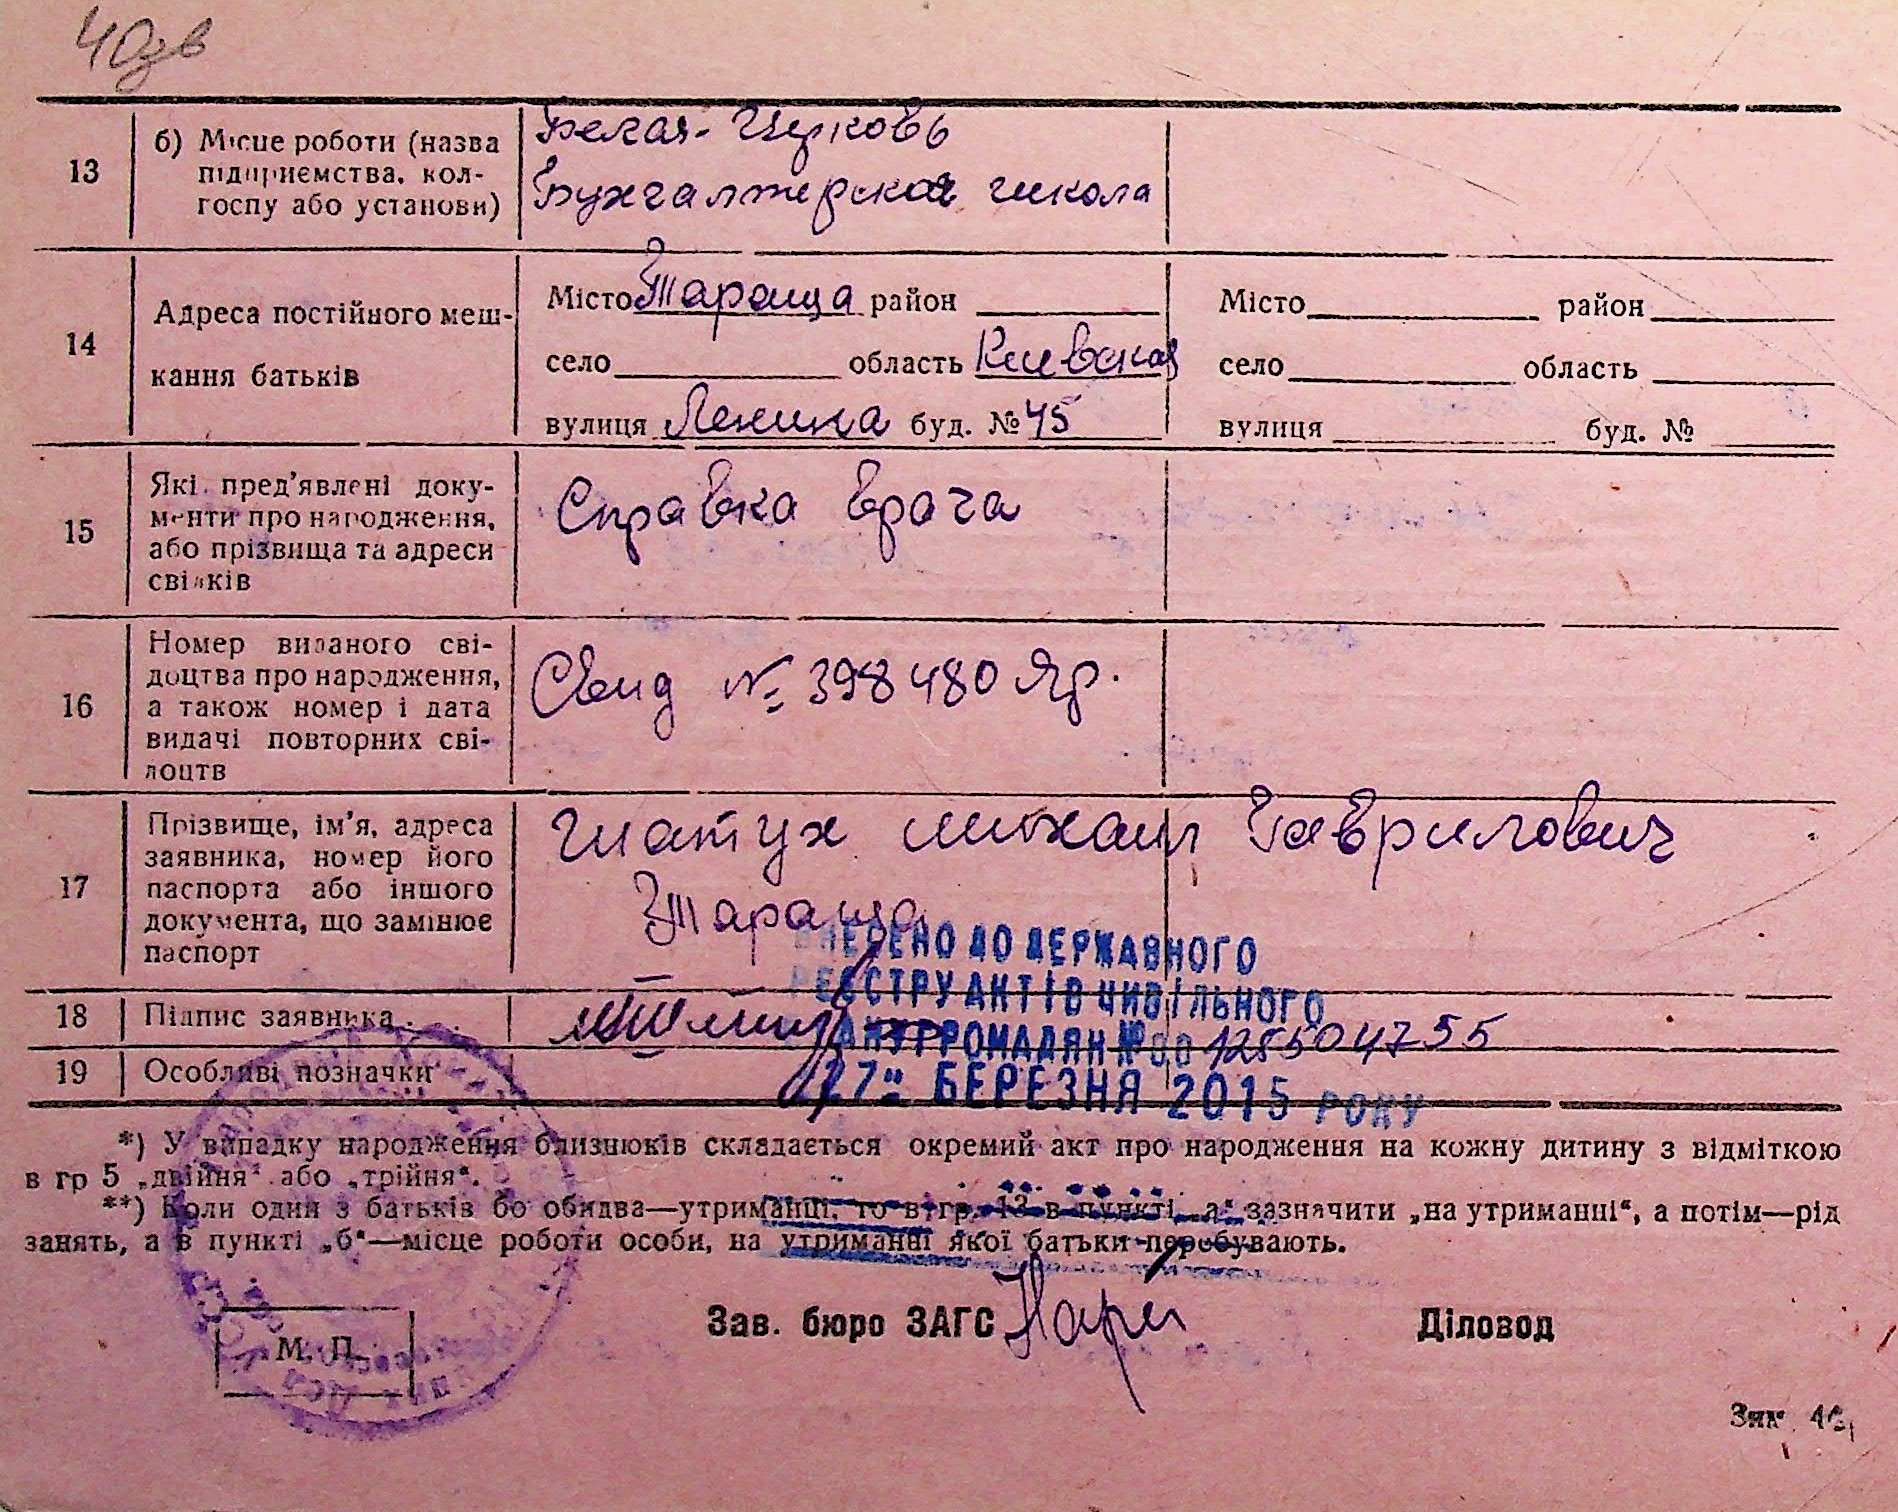 40зв
13
б) Місце роботи (назва
підприємства, кол-
госпу або установи)
Белая-Церковь
Бухгалтерская школа
14
Адреса постійного меш-
кання батьків
Місто Тараща район
село область Киевская
вулиця Ленина буд. № 45
Місто район
село область
вулиця буд. №
15
Які пред’явлені доку-
менти про народження,
або прізвища та адреси
свідків
Справка врача
16
Номер виданого сві-
доцтва про народження,
а також номер і дата
видачі повторних сві-
доцтв
Свид № 398480 Яр.
17
Прізвище, ім’я, адреса
заявника, номер його
паспорта або іншого
документа, що замінює
паспорт
Шатух Михаил Гаврилович
Тараща
ВНЕРЕНО ДО ДЕРЖАВНОГО
РЕЄСТРУ АКТІВ ЦИВІЛЬНОГО
ГРОМАДЯН №00125504755
27" БЕРЕЗНЯ 2015 РОКУ
18
Підпис заявника
19
Особливі позначки
*) У випадку народження близнюків складається окремий акт про народження на кожну дитину з відміткою
в гр 5 „двійня“ або „трійня“.
**) Коли один з батьків бо обидва—утриманці, то в гр. 13 в пункті „а“ зазначити „на утриманні“, а потім—рід
занять, а в пункті „б“—місце роботи особи, на утриманні якої батьки перебувають.
М. П.
Зав. бюро ЗАГС
Діловод